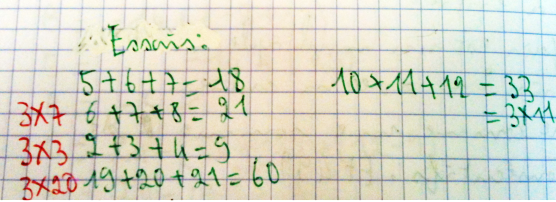 Essais:
5+6+7=18
3×7 6+7+8=21
3×3 2+3+4=9
3×20 19+20+21=60
10+11+12=33
=3×11